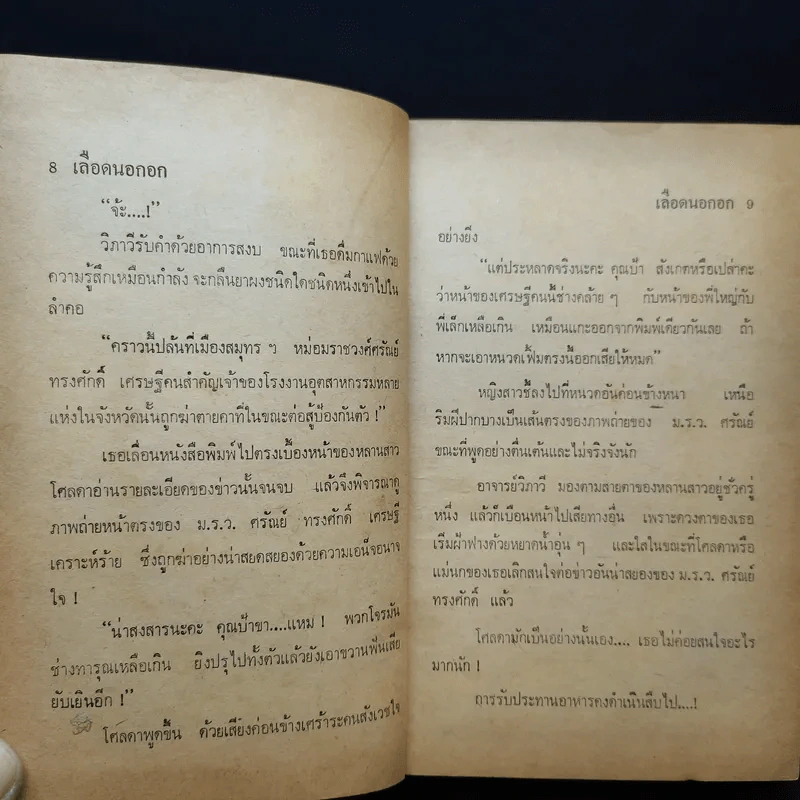 8 เลือดนอกอก
“จ้ะ....!”
วิภาวีรับคำด้วยอาการสงบ ขณะที่เธอดื่มกาแฟด้วย
ความรู้สึกเหมือนกำลัง จะกลืนยาผงชนิดใดชนิดหนึ่งเข้าไปใน
ลำคอ
“คราวนี้ปล้นที่เมืองสมุทร ฯ หม่อมราชวงศ์ศรัณย์
ทรงศักดิ์ เศรษฐีคนสำคัญเจ้าของโรงงานอุตสาหกรรมหลาย
แห่งในจังหวัดนั้นถูกฆ่าตายคาที่ในขณะต่อสู้ป้องกันตัว !”
เธอเลื่อนหนังสือพิมพ์ไปตรงเบื้องหน้าของหลานสาว
โศลดาอ่านรายละเอียดของข่าวนั้นจนจบ แล้วจึงพิจารณาดู
ภาพถ่ายหน้าตรงของ ม.ร.ว. ศรัณย์ ทรงศักดิ์ เศรษฐี
เคราะห์ร้าย ซึ่งถูกฆ่าอย่างน่าสยดสยองด้วยความเอน็จอนาจ
ใจ !
“น่าสงสารนะคะ คุณป้าขา....แหม ! พวกโจรมัน
ช่างทารุณเหลือเกิน ยิงปรุไปทั้งตัวแล้วยังเอาขวานฟันเสีย
ยับเยินอีก !”
โศลดาพูดขึ้น ด้วยเสียงค่อนข้างเศร้าระคนสังเวชใจ
เลือดนอกอก 9
อย่างยิ่ง
“แต่ประหลาดจริงนะคะ คุณป้า สังเกตหรือเปล่าคะ
ว่าหน้าของเศรษฐีคนนี้ช่างคล้าย ๆ กับหน้าของพี่ใหญ่กับ
พี่เล็กเหลือเกิน เหมือนแกะออกจากพิมพ์เดียวกันเลย ถ้า
หากจะเอาหนวดเฟิ้มตรงนี้ออกเสียให้หมด”
หญิงสาวชี้ลงไปที่หนวดอันค่อนข้างหนา เหนือ
ริมฝีปากบางเป็นเส้นตรงของภาพถ่ายของ ม.ร.ว. ศรัณย์
ขณะที่พูดอย่างตื่นเต้นและไม่จริงจังนัก
อาจารย์วิภาวี มองตามสายตาของหลานสาวอยู่ชั่วครู่
หนึ่ง แล้วก็เบือนหน้าไปเสียทางอื่น เพราะดวงตาของเธอ
เริ่มฝ้าฟางด้วยหยาดน้ำอุ่น ๆ และใสในขณะที่โศลดาหรือ
แม่นกของเธอเลิกสนใจต่อข่าวอันน่าสยองของ ม.ร.ว. ศรัณย์
ทรงศักดิ์ แล้ว
โศลดามักเป็นอย่างนั้นเอง.... เธอไม่ค่อยสนใจอะไร
มากนัก !
การรับประทานอาหารคงดำเนินสืบไป....!